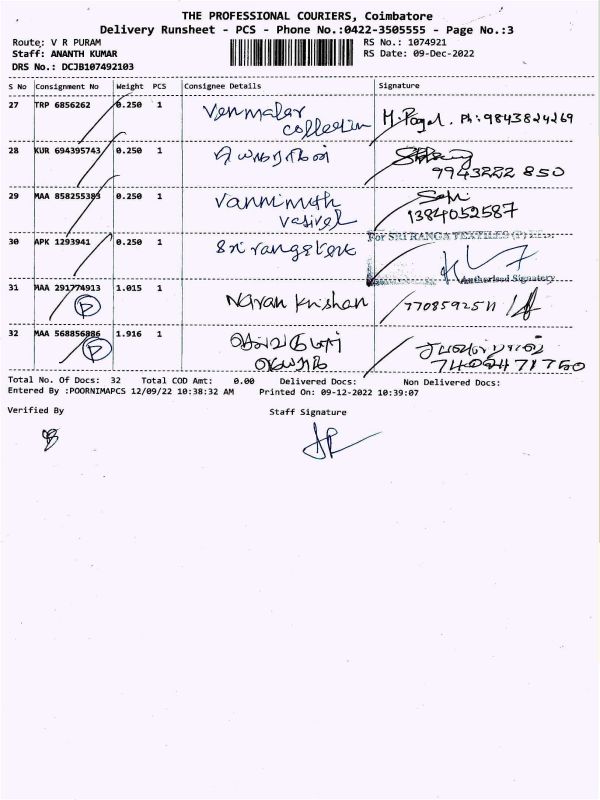 THE PROFESSIONAL COURIERS, Coimbatore
Delivery Runsheet - PCS - Phone No.:0422-3505555 - Page No.:3
Route: V R PURAM RS No.: 1074921
Staff: ANANTH KUMAR RS Date: 09-Dec-2022
DRS No.: DCJB107492103
S No Consignment No Weight PCS Consignee Details Signature
27 TRP 6856262 0.250 1 Venmalar
collection Ph:9843824269
28 KUR 694395743 0.250 1
9943222 850
29 MAA 858255383 0.250 1 Vannimuth
1384052587
30 APK 1293941 0.250 1 Sri
For SRI RANGA TEXTILES (P)
Authorised Signatory
31 MAA 291774913 1.015 1 Krishan
P
32 MAA 568856886 1.916 1
P 7402471750
Total No. Of Docs: 32 Total COD Amt: 0.00 Delivered Docs: Non Delivered Docs:
Entered By :POORNIMAPCS 12/09/22 10:38:32 AM Printed On: 09-12-2022 10:39:07
Verified By Staff Signature